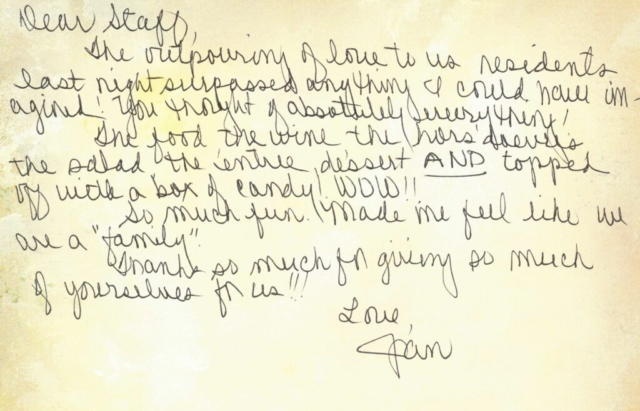 Dear Staff,
The outpouring of love to us residents
last night surpassed anything I could have im-
agined! You thought of absolutely everything!
The food the wine the hors d'oeuvres
the salad the entree dessert AND topped
off with a box of candy! WOW!!
So much fun! Made me feel like we
are a "family".
Thanks so much for giving so much
of yourselves for us!!!
Love,
Jan